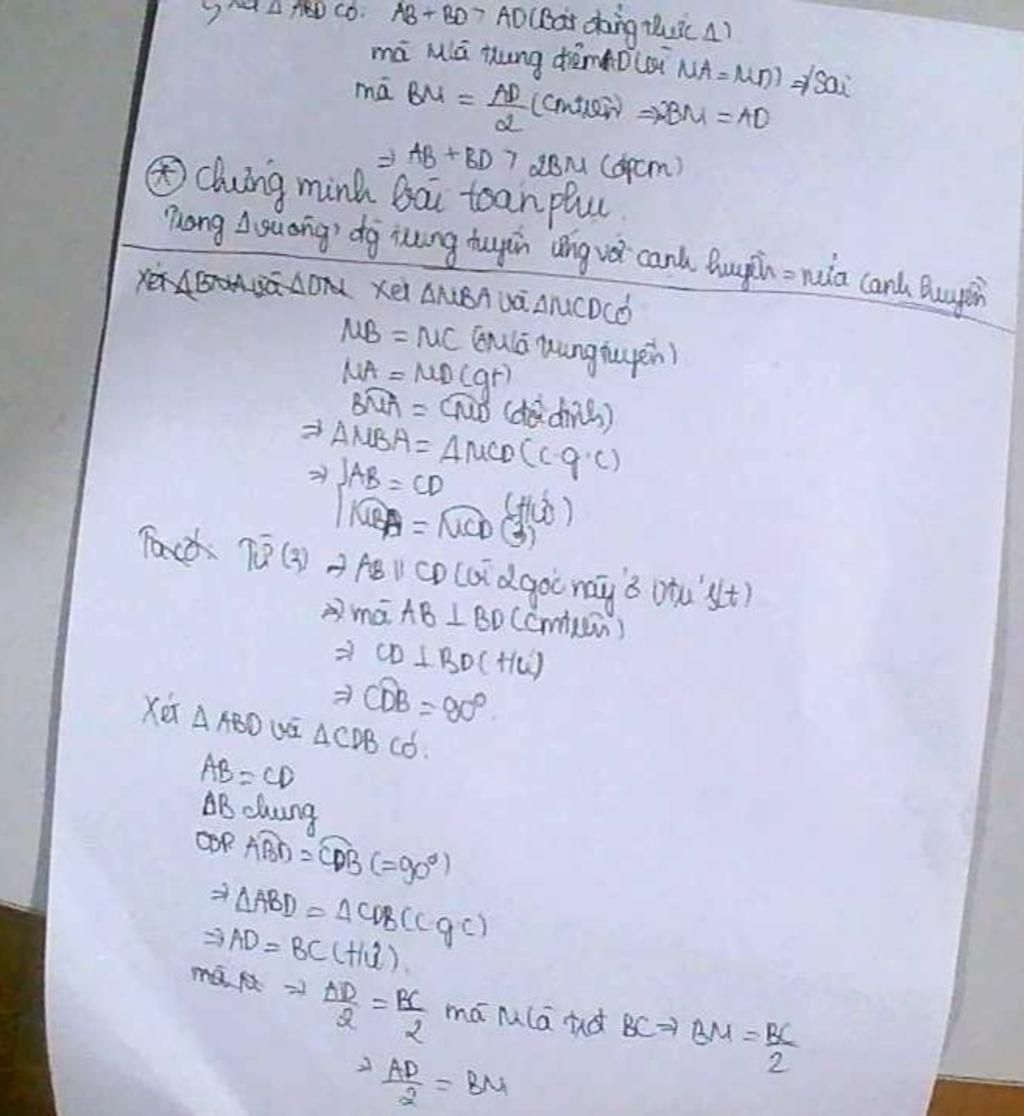 Xét Δ ABD có: AB + BD > AD (Bất đẳng thức Δ)
mà M là trung điểm AD (vì MA = MD) => Sai
mà BM = AD/2 (cmtrên) => 2BM = AD
=> AB + BD > 2BM (đpcm)
* Chứng minh bài toán phụ.
Trong Δ vuông, đg trung tuyến ứng với cạnh huyền = nửa cạnh huyền
Xét ΔBMA và ΔDM Xét ΔMBA và ΔMCD có
MB = MC (AM là trung tuyến)
MA = MD (gt)
BMA = CMD (đối đỉnh)
=> ΔMBA = ΔMCD (c.g.c)
=> AB = CD
MBA = MCD (3) (t/ứ)
Ta có: Từ (3) => AB // CD (vì 2 góc này ở vtrí slt)
=> mà AB ⊥ BD (cmtrên)
=> CD ⊥ BD (t/ứ)
=> CDB = 90°.
Xét Δ ABD và ΔCDB có:
AB = CD
DB chung
ABD = CDB (=90°)
=> ΔABD = ΔCDB (c.g.c)
=> AD = BC (t/ứ).
mà => AD/2 = BC/2 mà M là tđ BC => BM = BC/2
=> AD/2 = BM